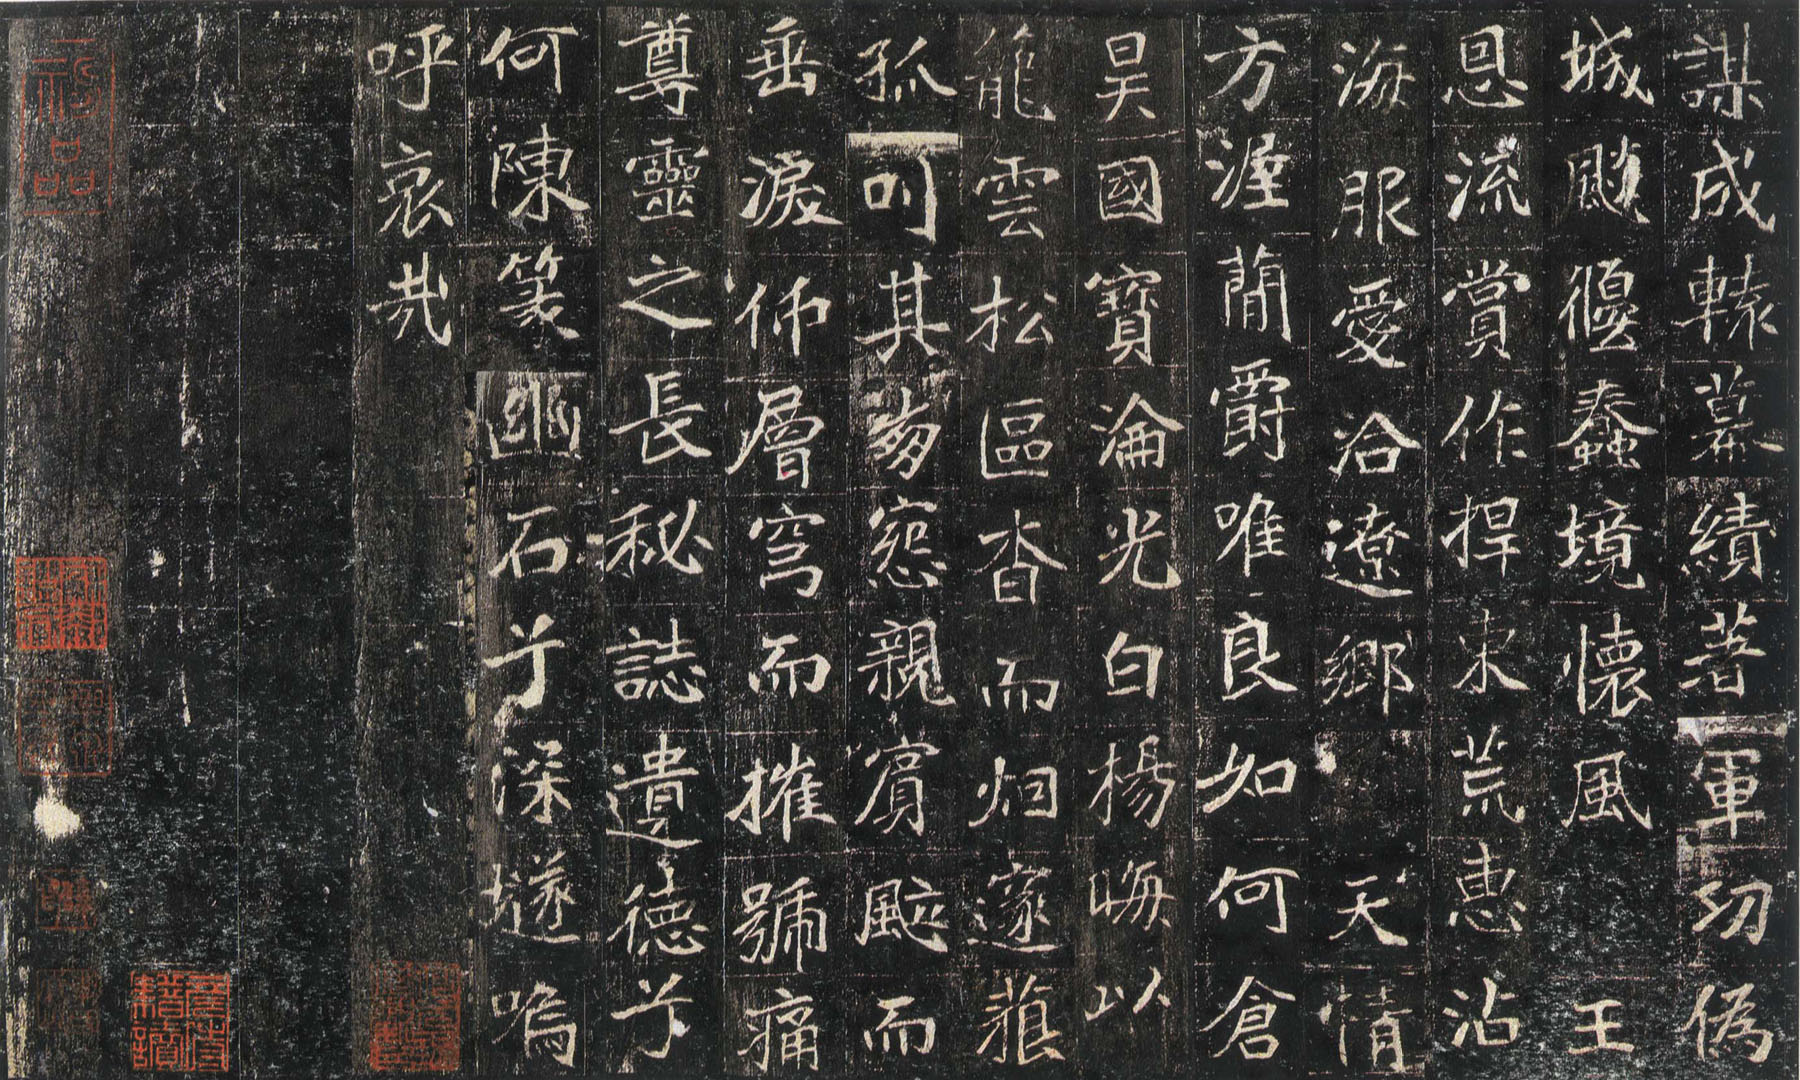 謀成轅幕績著軍功偽
城颷偃蠢境懷風王
恩流賞作捍東荒惠沾
海服愛洽遼鄉天情
方渥簡爵唯良如何倉
昊國寶淪光白楊晦以
籠雲松區杳而烟邃藐
孤叩其怨親賓颯而
垂淚仰層穹而摧號痛
尊靈之長秘誌遺德兮
何陳篆幽石兮深隧嗚
呼哀哉